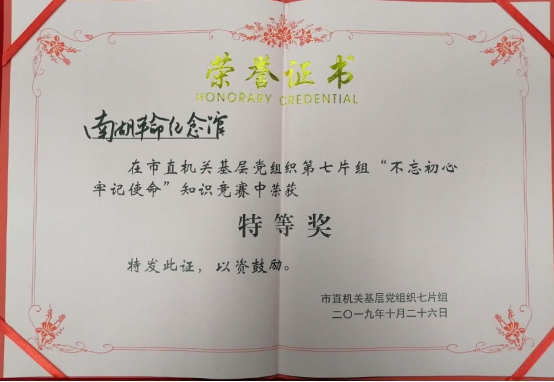 荣誉证书
HONORARY CREDENTIAL
南湖革命纪念馆
在市直机关基层党组织第七片组“不忘初心
牢记使命”知识竞赛中荣获
特等奖
特发此证，以资鼓励。
市直机关基层党组织七片组
二〇一九年十月二十六日